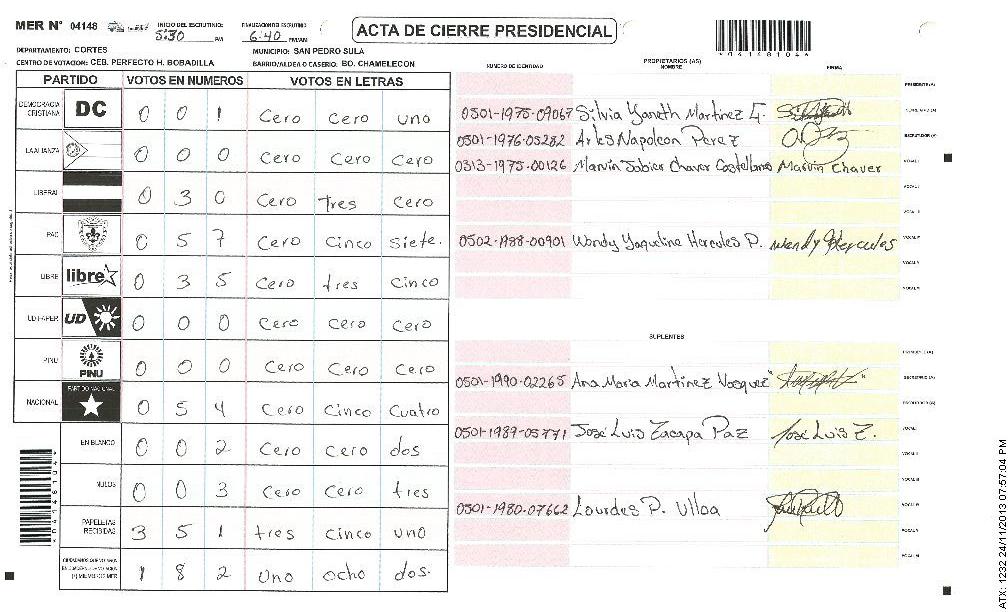 MER N° 04148 INICIO DEL ESCRUTINIO: 5:30 PM FINALIZACION DEL ESCRUTINIO: 6:40 PM/AM
ACTA DE CIERRE PRESIDENCIAL
*04148104*
DEPARTAMENTO: CORTES MUNICIPIO: SAN PEDRO SULA
CENTRO DE VOTACION: CEB. PERFECTO H. BOBADILLA BARRIO/ALDEA O CASERIO: BO. CHAMELECON
PARTIDO VOTOS EN NUMEROS VOTOS EN LETRAS
DEMOCRACIA CRISTIANA DC 0 0 1 Cero Cero uno
LA ALIANZA 0 0 0 Cero Cero Cero
LIBERAL 0 3 0 Cero tres Cero
PAC 0 5 7 Cero Cinco Siete.
LIBRE libre 0 3 5 Cero tres Cinco
UD-FAPER UD 0 0 0 Cero Cero Cero
PINU PINU 0 0 0 Cero Cero Cero
NACIONAL PARTIDO NACIONAL 0 5 4 Cero Cinco Cuatro
EN BLANCO 0 0 2 Cero Cero dos
NULOS 0 0 3 Cero Cero tres
PAPELETAS RECIBIDAS 3 5 1 tres Cinco uno
1 8 2 uno ocho dos.
*04148104*
PROPIETARIOS (AS)
NUMERO DE IDENTIDAD NOMBRE FIRMA
PRESIDENTE(A)
0501-1975-09067 Silvia Yaneth Martinez G.
0501-1976-05282 Arles Napoleon Perez ESCRUTADOR (A)
0313-1975-00126 Marvin Jabier Chaver Castellano Marvin Chaver
0502-1988-00901 Wendy Yaqueline Hercules P. Wendy Hercules
SUPLENTES
PRESIDENTE(A)
0501-1990-02265 Ana Maria Martinez Vasquez SECRETARIO (A)
ESCRUTADOR (A)
0501-1989-05771 José Luis Zacapa Paz José Luis Z.
0501-1980-07662 Lourdes P. Ulloa
ATX: 1232 24/11/2013 07:57:04 PM